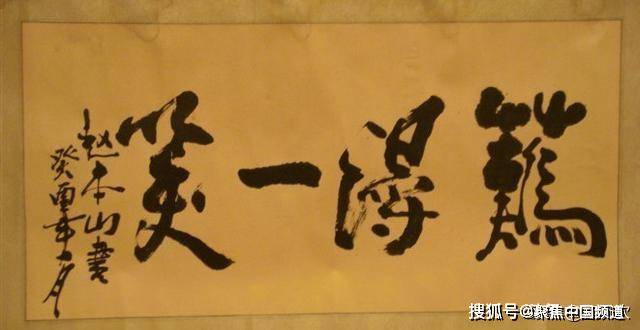 難得一笑
赵本山書
癸酉年
搜狐号@聚焦中国频道